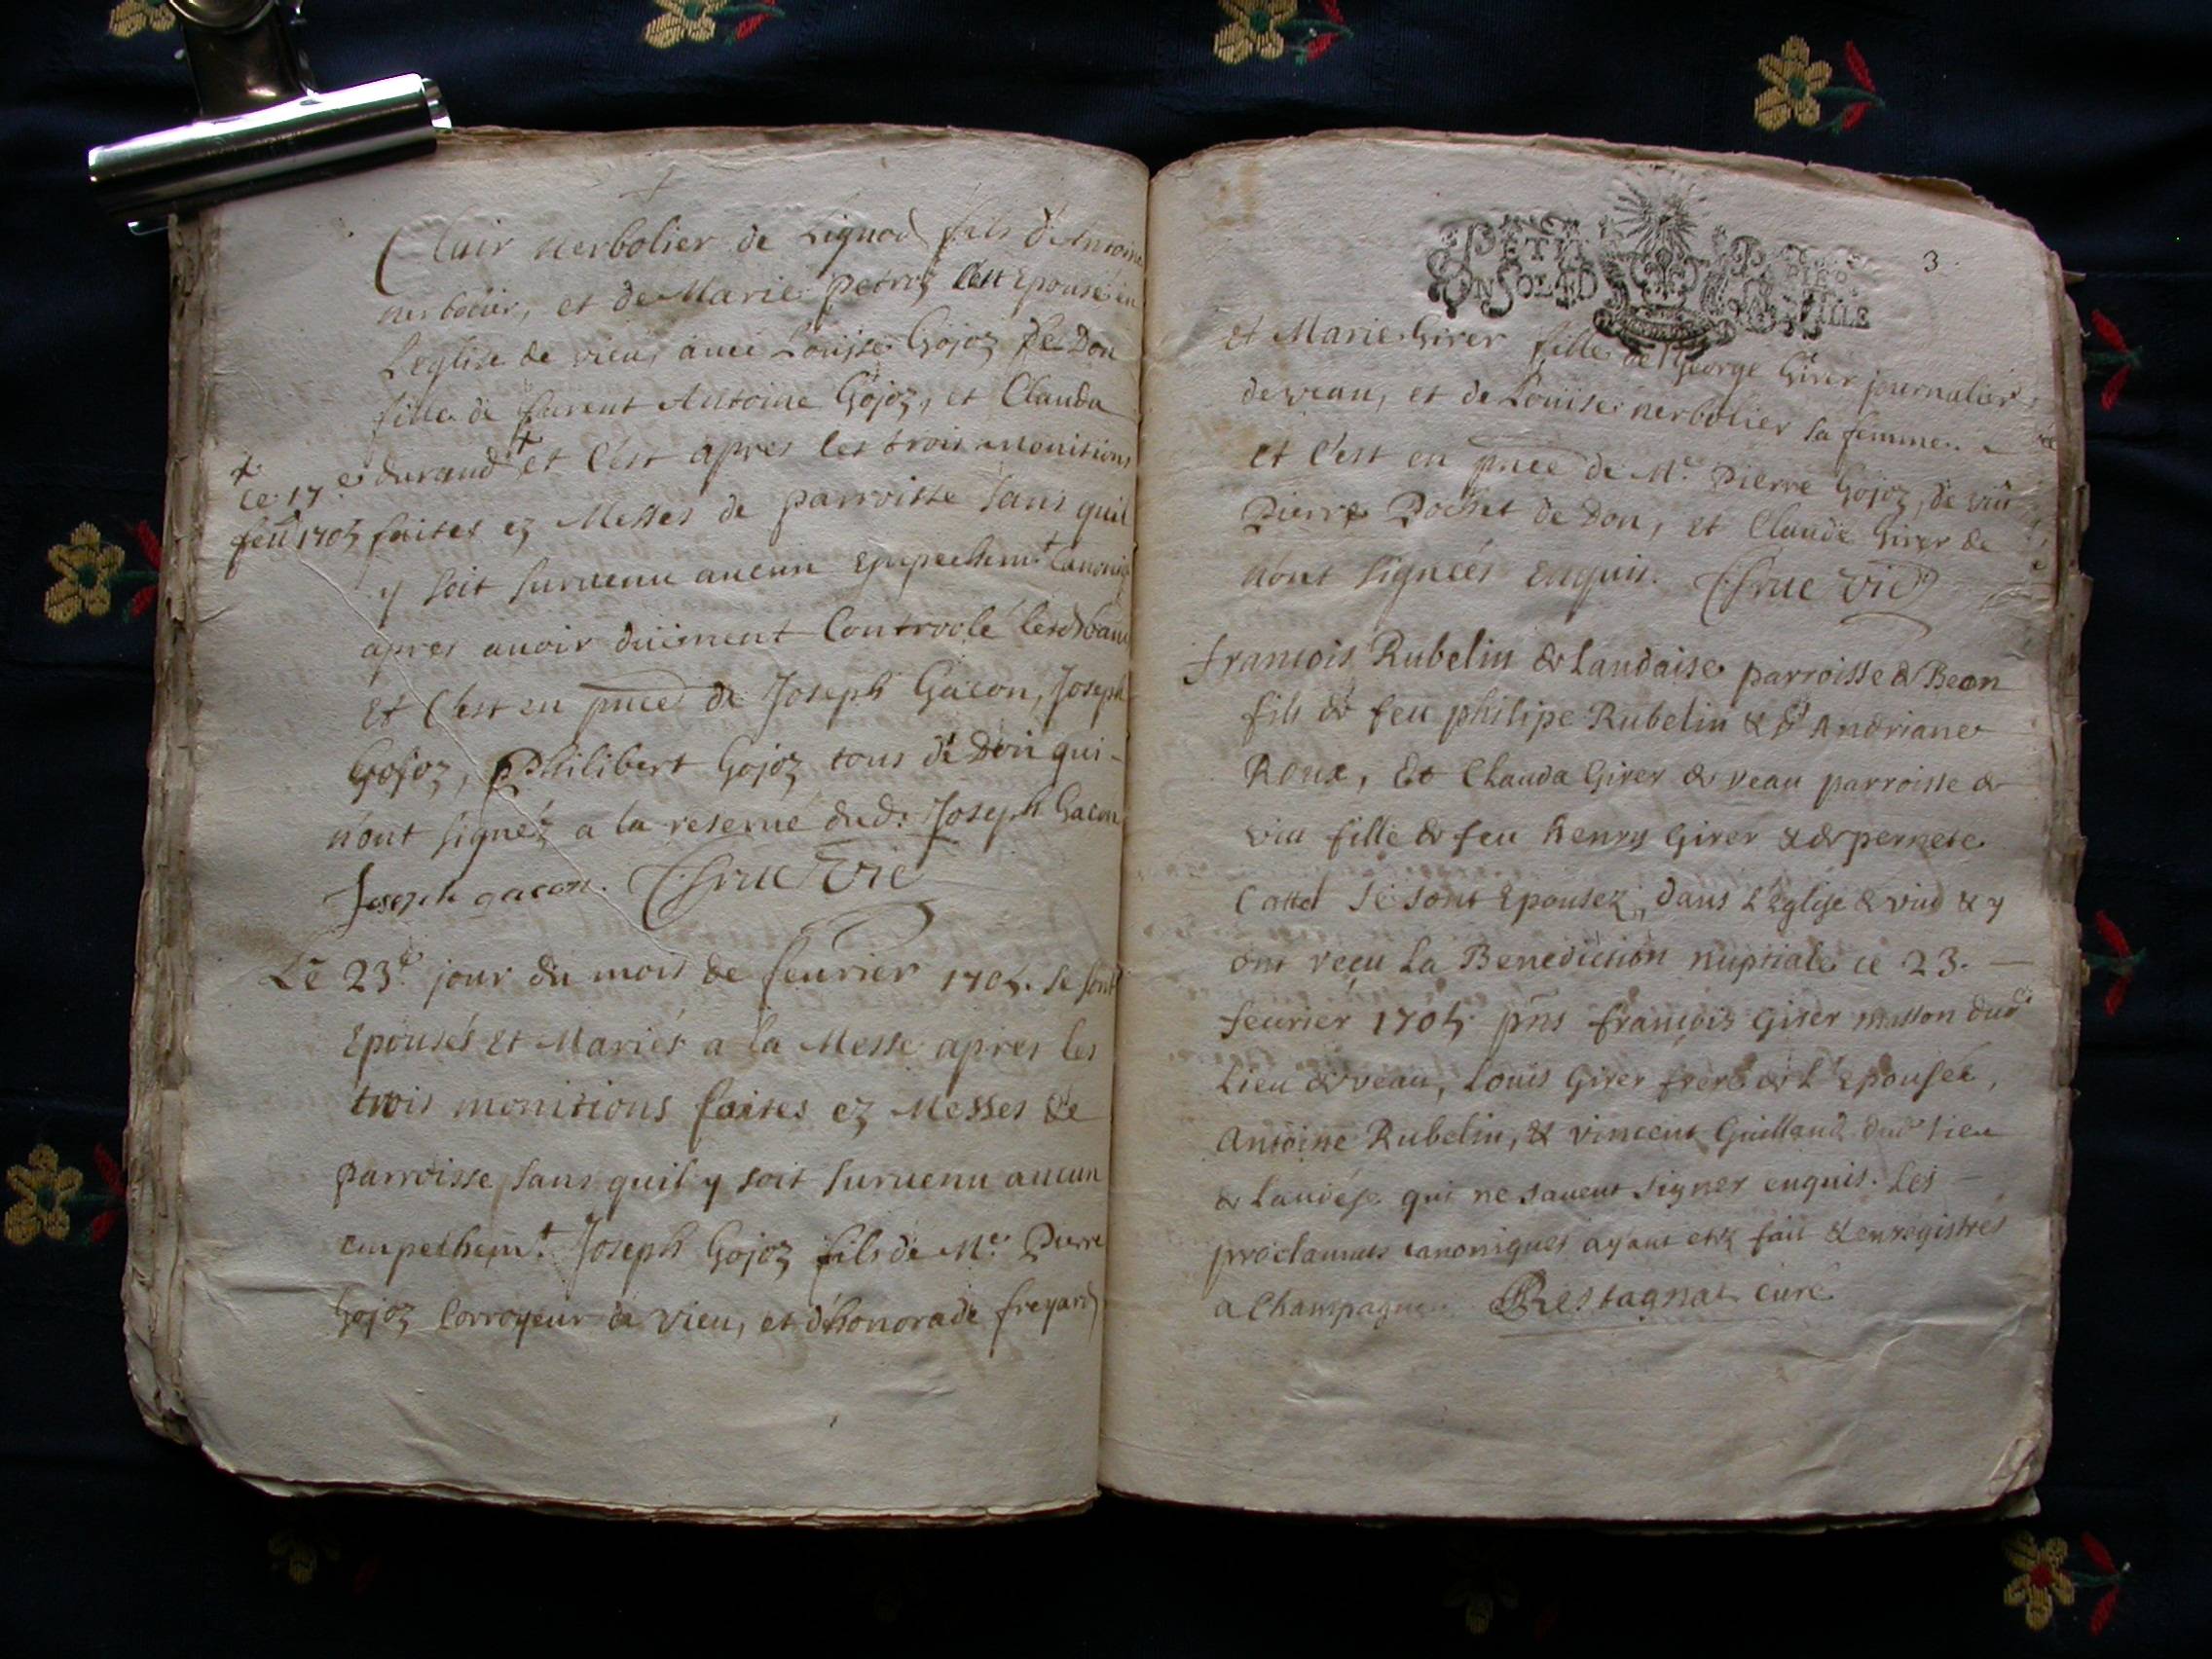 Clair nerbolier de Lignod fils d'Antoine
nerbolier, et de Marie Petroz s'est Epousé en
L'eglise de vieu, avec Louise Gojoz de Don
fille de furent Antoine Gojoz, et Clauda
durand + et c'est apres les trois monitions
+ ce 17.e
feu. 1705
faites ez Messes de parroisse sans quil
y soit survenu aucun Empechem.t Canoniq
apres avoir düement Controolé lesd. bans
Et c'est en pnce de Joseph Gacon, Joseph
Gojoz, Philibert Gojoz tous de Don qui -
n'ont signéz a la reserve dud. Joseph Gacon
Joseph gacon.
Le 23.e jour du mois de feurier 1705. se sont
Epousés et Mariés a la Messe apres les
trois monitions faites ez Messes de
parroisse sans quil y soit survenu aucun
empechem.t Joseph Gojoz fils de M.e Pierre
Gojoz Corroyeur de Vieu, et d'honorade freyard
3
et Marie Girer fille de George Girer journalier
de veau, et de Louise nerbolier sa femme.
et c'est en pnce de M.e Pierre Gojoz, de vieu
Pierre Pochet de Don, et Claude Girer de
n'ont signées enquis.
francois Rubelin de Landaise parroisse de Beon
fils de feu philipe Rubelin & d' Andriane
Roux, Et Clauda Girer de veau parroisse de
viu fille de feu henry Girer & de pernete
Cattel se sont Epousez, dans L'Eglise de viud & y
ont reçu La Benediction nuptiale ce 23. —
feurier 1705. pns françois Girer masson dud
Lieu de veau, Louis Girer frere de L'epousée,
Antoine Rubelin, & vincent Guilland dud lieu
de Landése qui ne savent signer enquis. Les —
proclamats canoniques ayant etez fait & enregistres
a Champagne. Restagnat curé